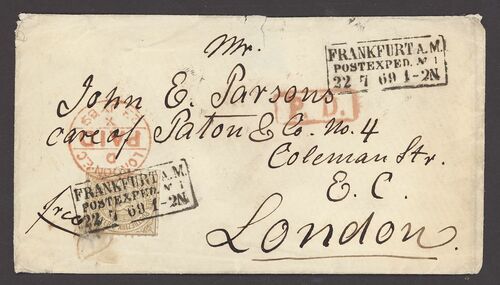 Mr.
FRANKFURT A.M.
POSTEXPED. Nº 1
22 7 69 1-2N.
John E. Parsons
P. D.
care of Paton & Co. No. 4
PAID
LONDON-EC
Coleman Str.
FRANKFURT A.M.
POSTEXPED. Nº 1
22 7 69 1-2N.
E. C.
free
London.